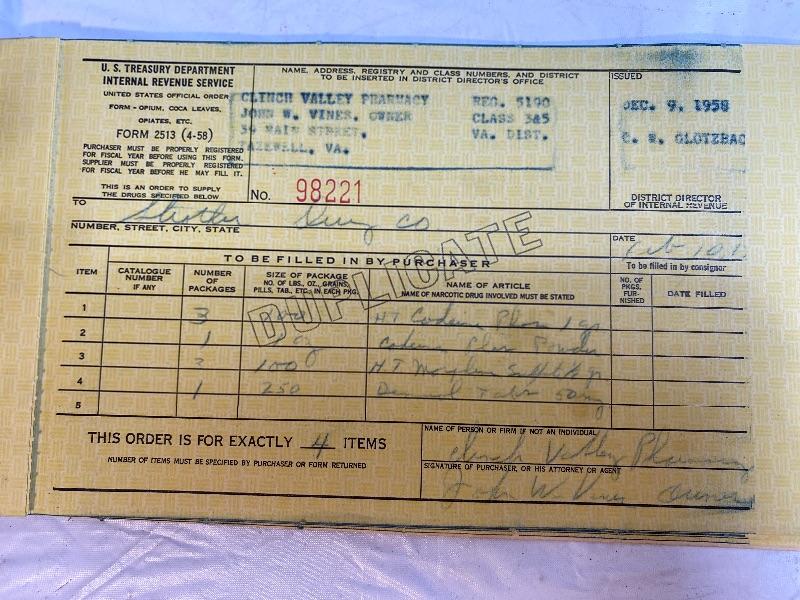 U. S. TREASURY DEPARTMENT
INTERNAL REVENUE SERVICE
UNITED STATES OFFICIAL ORDER
FORM - OPIUM, COCA LEAVES,
OPIATES, ETC.
FORM 2513 (4-58)
PURCHASER MUST BE PROPERLY REGISTERED
FOR FISCAL YEAR BEFORE USING THIS FORM.
SUPPLIER MUST BE PROPERLY REGISTERED
FOR FISCAL YEAR BEFORE HE MAY FILL IT.
THIS IS AN ORDER TO SUPPLY
THE DRUGS SPECIFIED BELOW
NAME, ADDRESS, REGISTRY AND CLASS NUMBERS, AND DISTRICT
TO BE INSERTED IN DISTRICT DIRECTOR'S OFFICE
CLINCH VALLEY PHARMACY REG. 5190
JOHN W. VINES, OWNER CLASS 3&5
MAIN STREET, VA. DIST.
AZEWELL, VA.
NO. 98221
ISSUED
DEC. 9, 1958
C. W. GLOTZBAC
DISTRICT DIRECTOR
OF INTERNAL REVENUE
TO Drug Co
NUMBER, STREET, CITY, STATE
DATE
DUPLICATE
TO BE FILLED IN BY PURCHASER
To be filled in by consignor
ITEM
CATALOGUE
NUMBER
IF ANY
NUMBER
OF
PACKAGES
SIZE OF PACKAGE
NO. OF LBS., OZ., GRAINS,
PILLS, TAB., ETC., IN EACH PKG.
NAME OF ARTICLE
NAME OF NARCOTIC DRUG INVOLVED MUST BE STATED
NO. OF
PKGS.
FUR-
NISHED
DATE FILLED
1 3 HT Codeine Phos 1 gr
2 1 Codeine Phos Powder
3 100 HT Morphine
4 1 250 Demerol Tabs 50 mg
5
THIS ORDER IS FOR EXACTLY 4 ITEMS
NUMBER OF ITEMS MUST BE SPECIFIED BY PURCHASER OR FORM RETURNED
NAME OF PERSON OR FIRM IF NOT AN INDIVIDUAL
Clinch Valley Pharmacy
SIGNATURE OF PURCHASER, OR HIS ATTORNEY OR AGENT
John W Vines owner